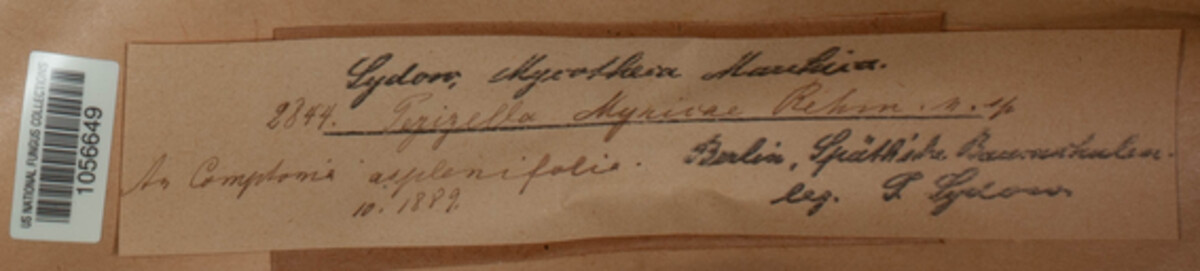 US NATIONAL FUNGUS COLLECTIONS
1056649
Sydow, Mycotheca Marchica.
2844. Pezizella Myricae Rehm. n. sp
An Comptonia asplenifolia.
10. 1889.
Berlin, Späth'sche Baumschulen.
leg. P. Sydow